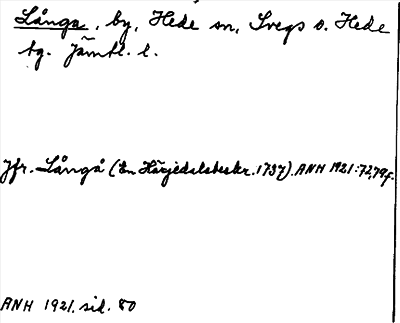 Långa, by, Hede sn, Svegs o. Hede
tg. Jämtl. l.
Jfr. Långå (En Härjedalsbeskr. 1737). ANH 1921:72,79f.
ANH 1921. sid. 80